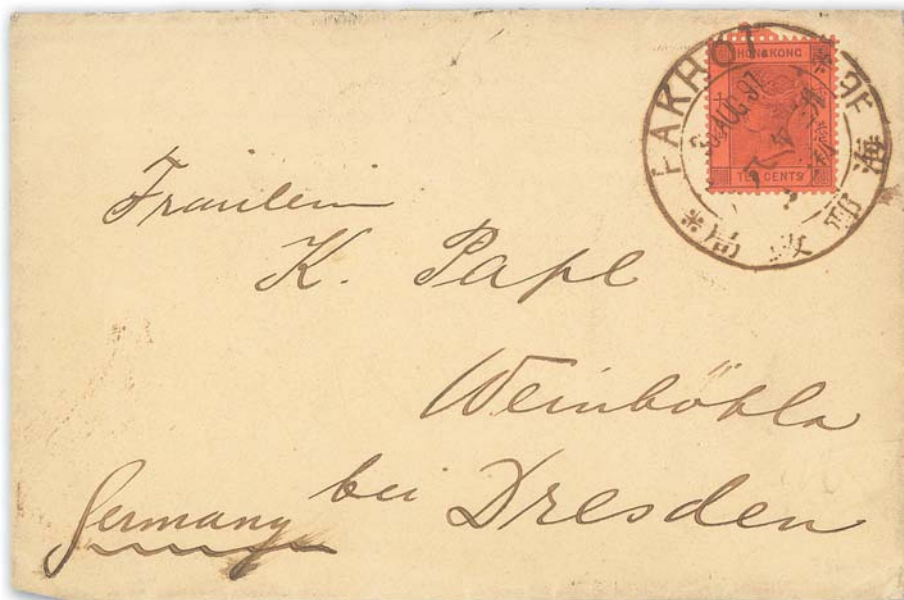 PAKHOI
AUG 97
北海郵政局
HONG KONG
TEN CENTS
Fräulein
K. Pape
Weinböhla
bei Dresden
Germany